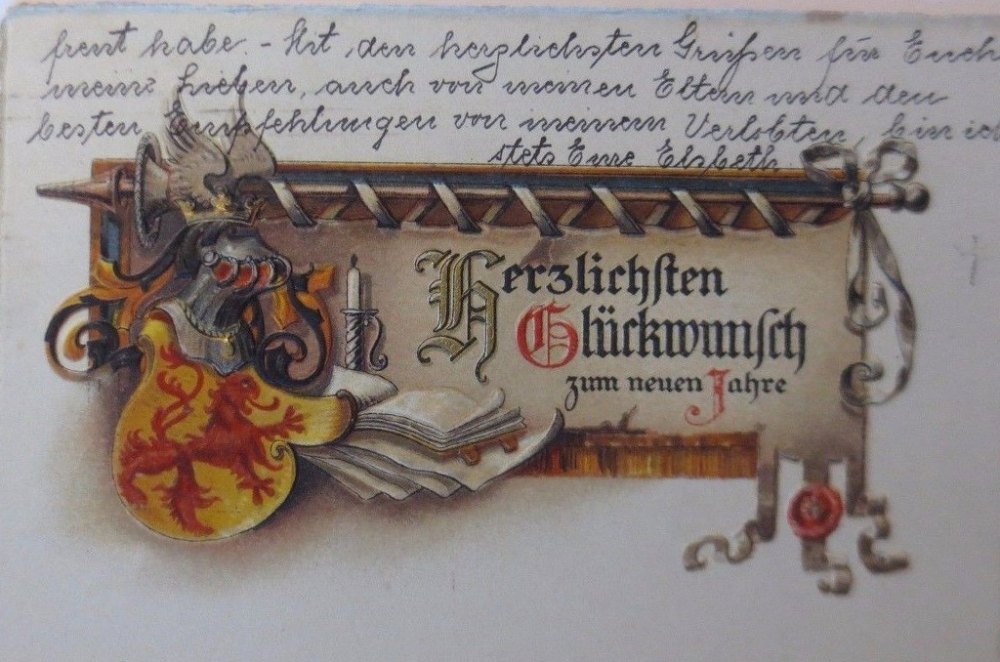 freut habe. - Mit den herzlichsten Grüßen für Euch
meine Lieben, auch von meinen Eltern und den
besten Empfehlungen von meinem Verlobten, bin ich
stets Eure Elsbeth
Herzlichsten
Glückwunsch
zum neuen Jahre